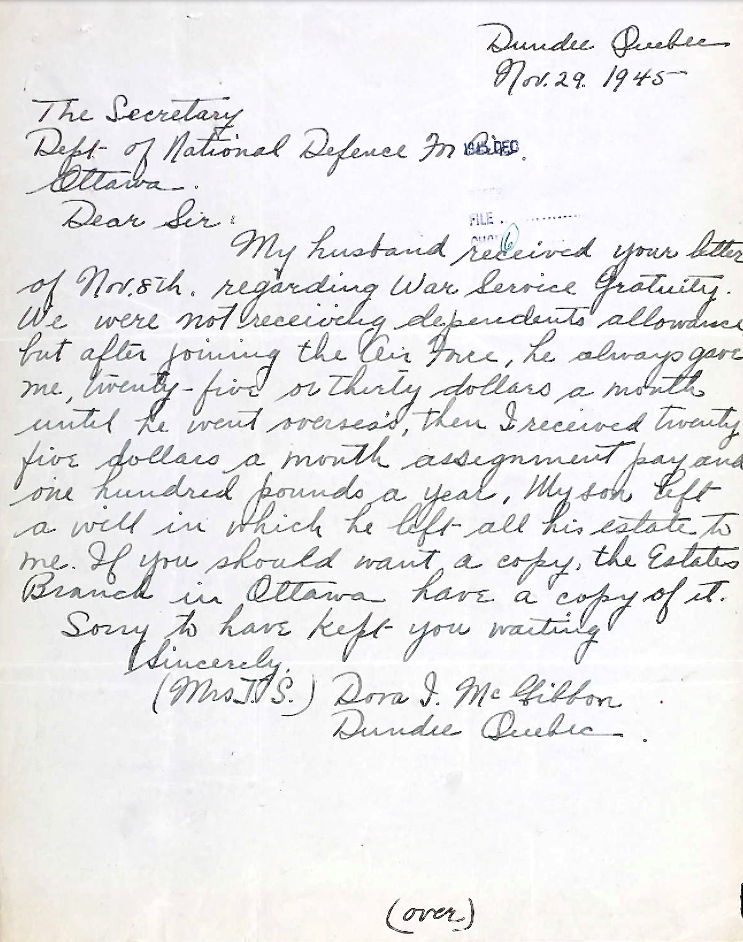 Dundee Quebec
Nov. 29. 1945
The Secretary
Dept of National Defence For Air.
1945 DEC
Ottawa.
Dear Sir:
FILE ..............
My husband received your letter
of Nov. 8th. regarding War Service Gratuity.
We were not receiving dependents allowance
but after joining the Air Force, he always gave
me, twenty-five or thirty dollars a month
until he went overseas, then I received twenty
five dollars a month assignment pay and
one hundred pounds a year. My son left
a will in which he left all his estate to
me. If you should want a copy, the Estates
Branch in Ottawa have a copy of it.
Sorry to have kept you waiting
Sincerely,
(Mrs T. S.) Dora I. McGibbon
Dundee Quebec.
(over)